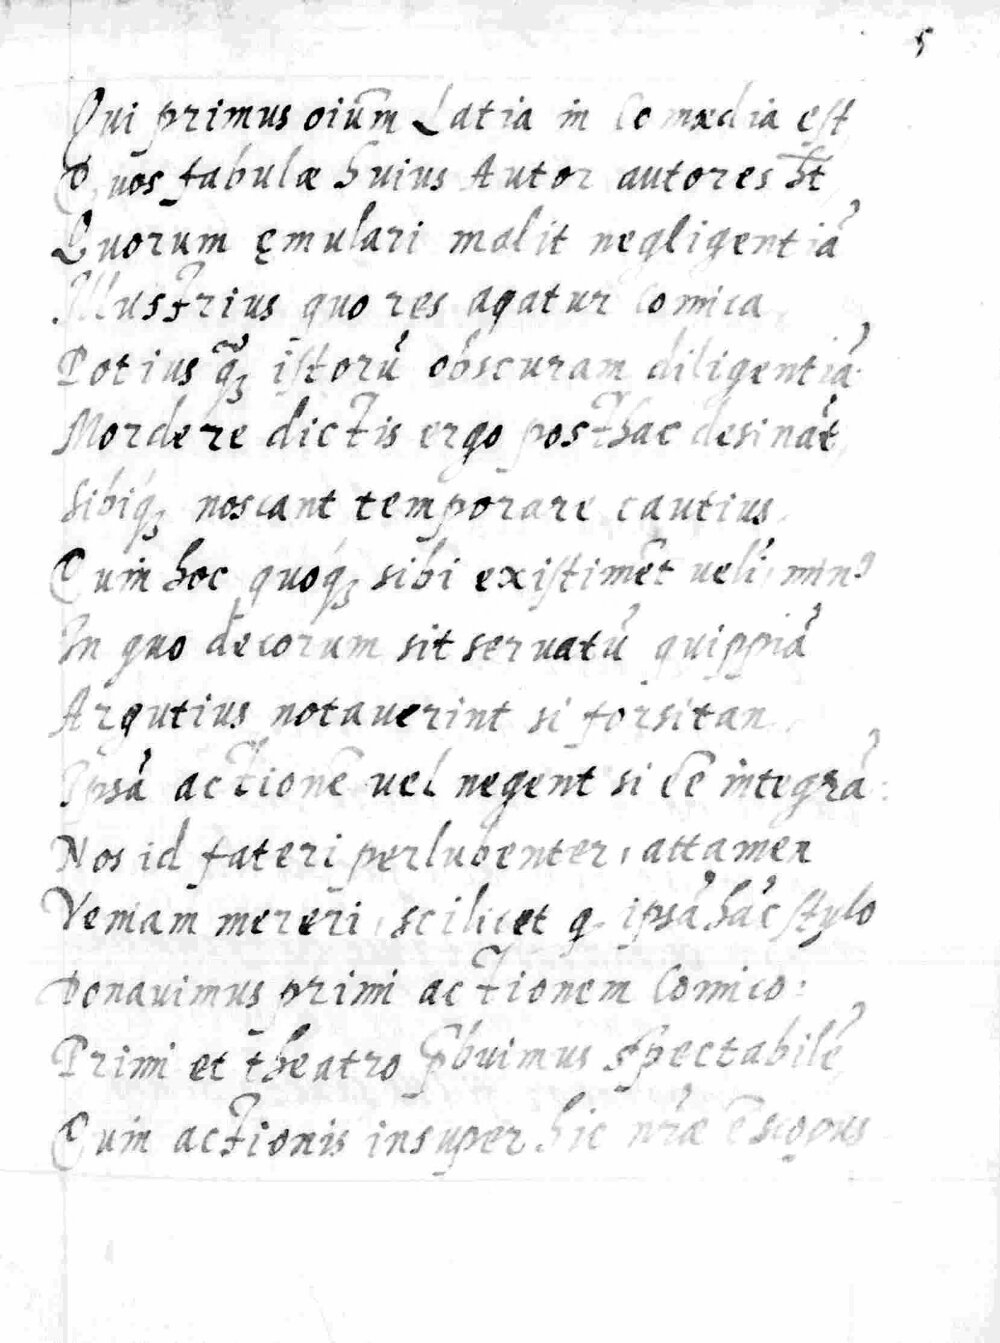 5
Qui primus oiu͂m Latia in Comœdia est
Quos fabulæ huius Autor autores h͞t
Quorum ęmulari malit negligentiā
Illustrius quo res agatur comica,
Potius q̃ꝫ istorū obscuram diligentiā.
Mordere dictis ergo posthac desināt,
Sibiq́ꝫ noscant temporare cautius,
Cum hoc quoq́ꝫ sibi existimēt uelī, minꝰ
In quo decorum sit seruatū quippiā
Argutius notauerint si forsitan,
Ipsā actionē uel negent si ēē integrā:
Nos id fateri perlubenter, attamen
Veniam mereri, scilicet q ipsā hāc stylo
Donauimus primi actionem Comico:
Primi et theatro p̄buimus spectabilē,
Cum actionis insuper hic nr̄æ ē scopus